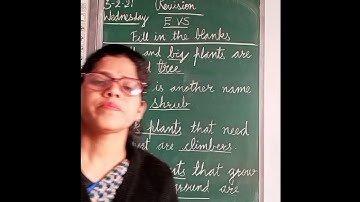 3-2-21 Revision
Wednesday EVS
Fill in the blanks
and big plants are
tree
is another name
shrub
plants that need
are climbers
that grow
ground are